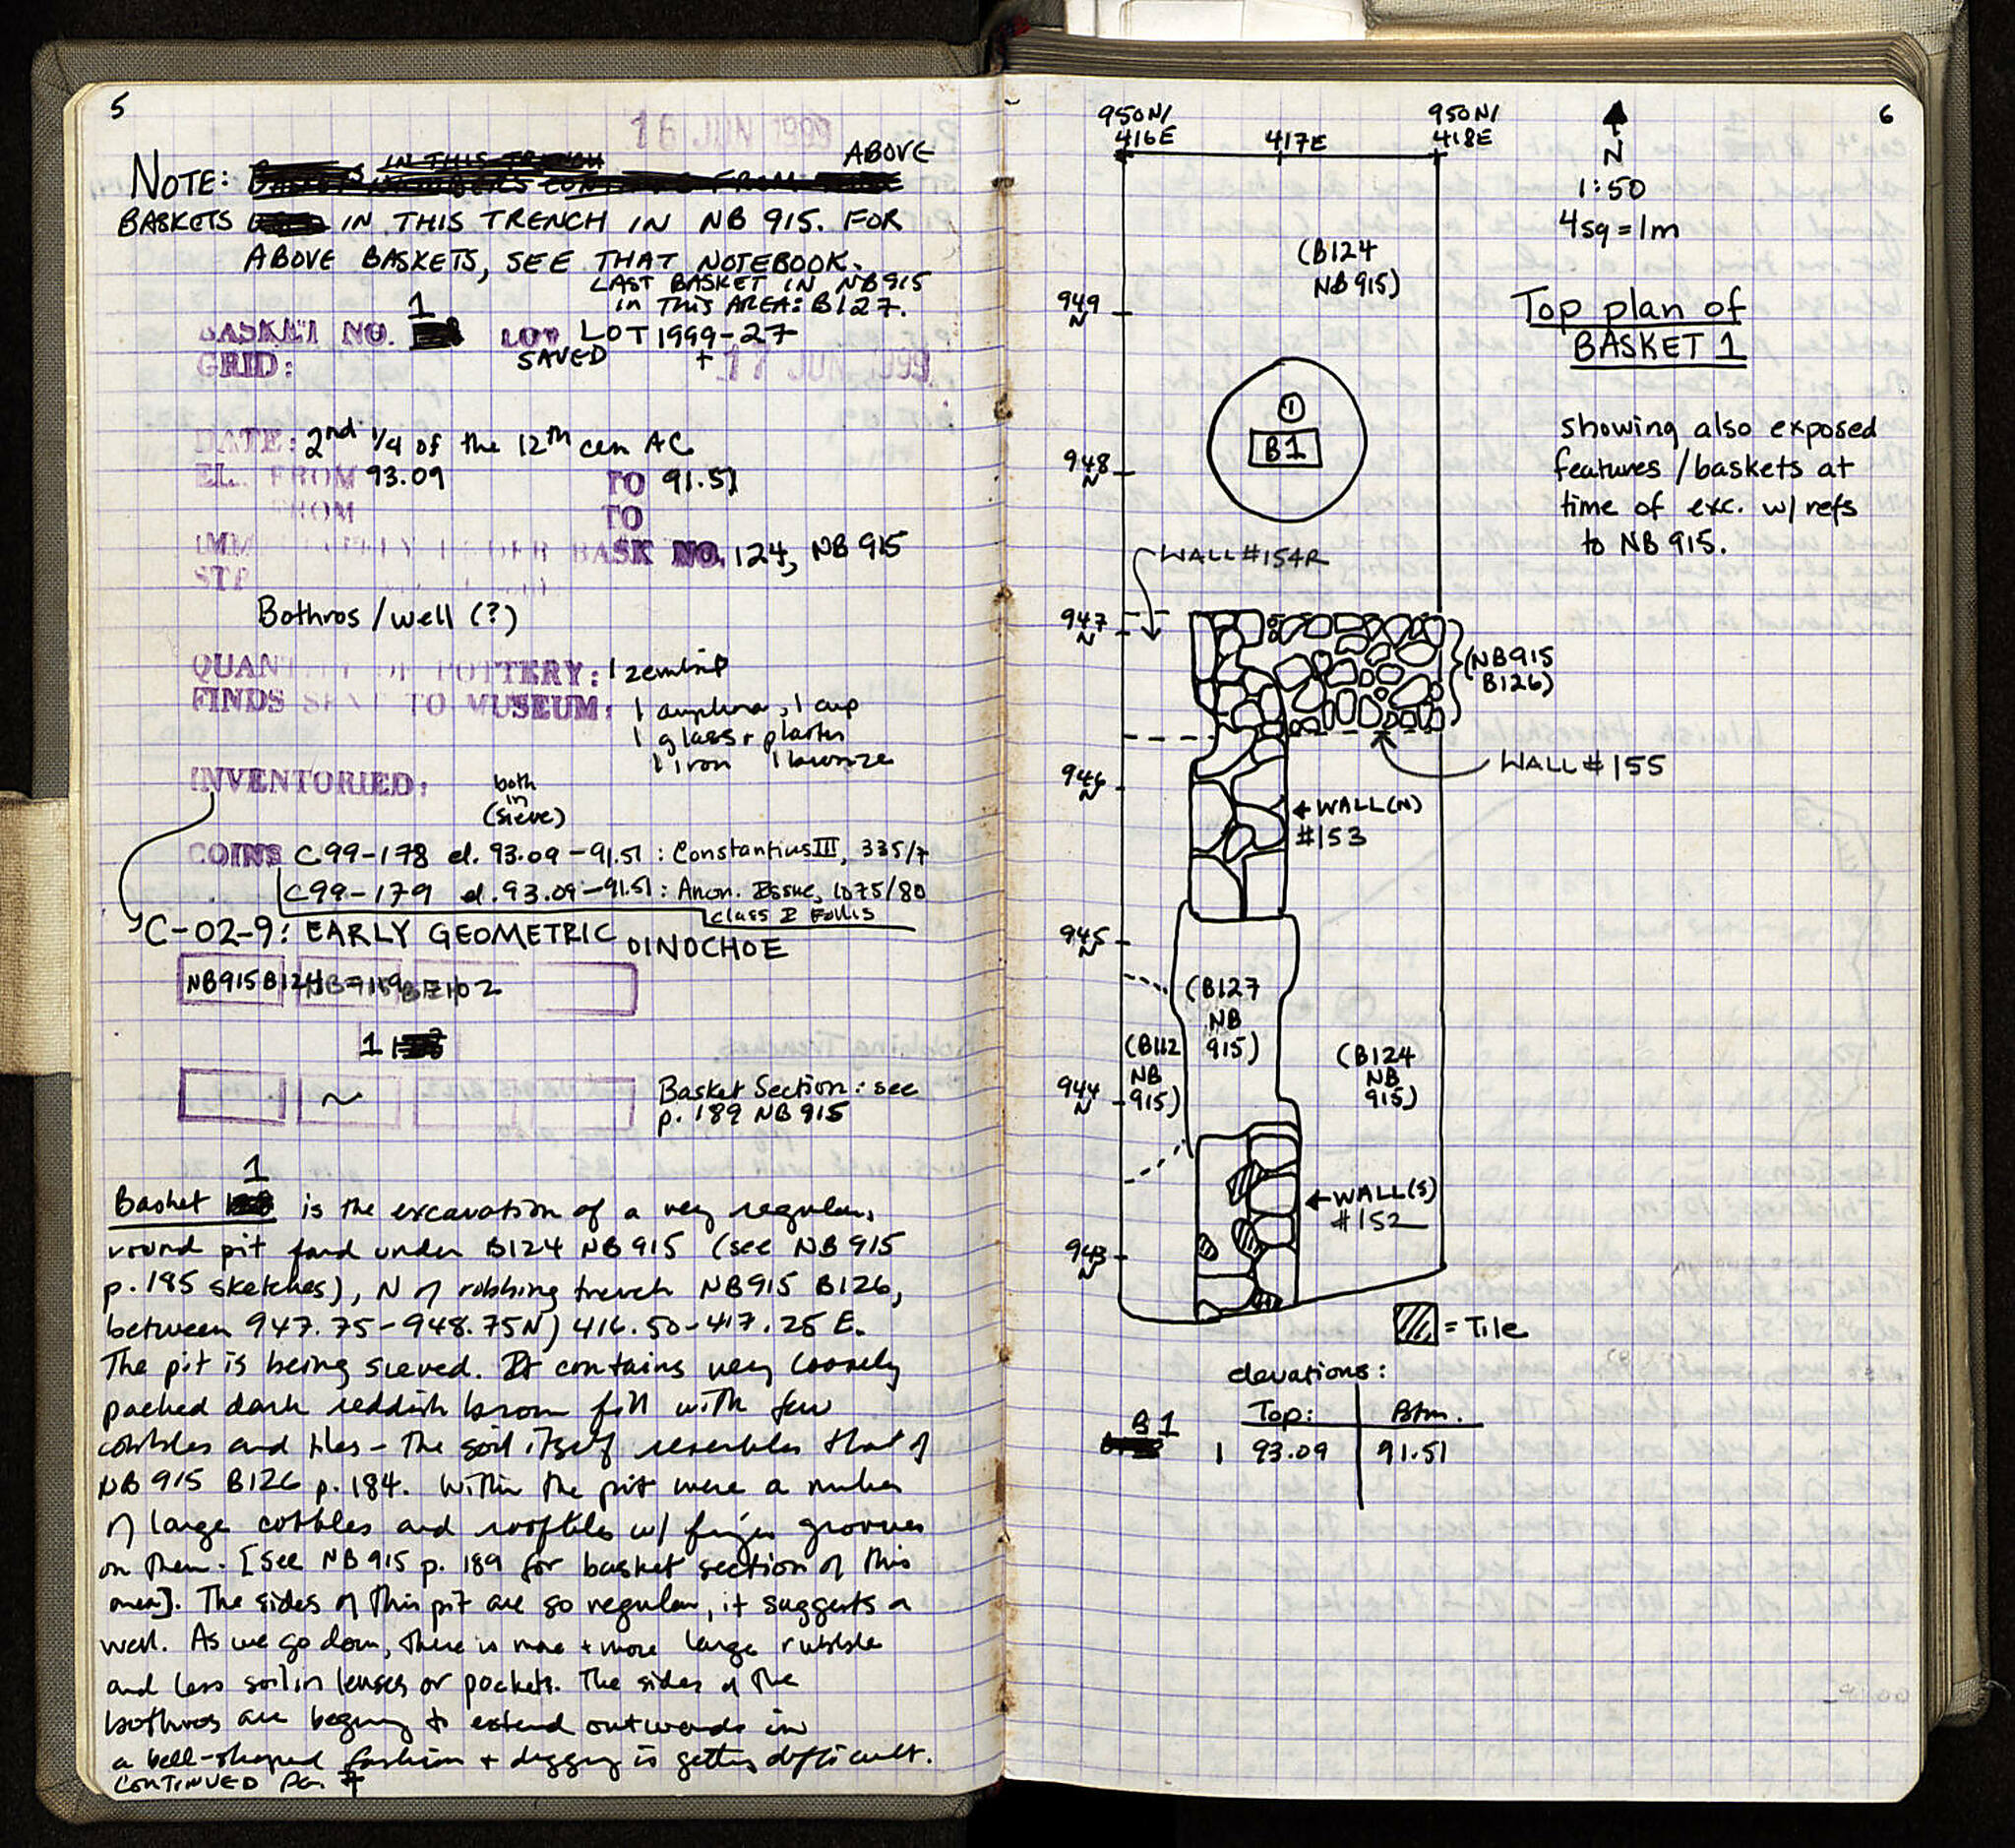 5
16 JUN 1999
NOTE: ABOVE
BASKETS IN THIS TRENCH IN NB 915. FOR
ABOVE BASKETS, SEE THAT NOTEBOOK.
LAST BASKET IN NB915
in THIS AREA: B127.
BASKET NO. 1 LOT LOT 1999-27
SAVED
GRID: + 17 JUN 1999
DATE: 2nd 1/4 of the 12th cen AC
EL. FROM 93.09 TO 91.51
FROM TO
IMMEDIATELY UNDER BASK NO. 124, NB 915
Bothros/well (?)
QUANTITY OF POTTERY: 1 zembil
FINDS SENT TO MUSEUM: 1 amphora, 1 cup
1 glass + plaster
1 iron 1 bronze
INVENTORIED: both
in
(sieve)
COINS C99-178 el. 93.09-91.51: Constantius III, 335/7
C99-179 el. 93.09-91.51: Anon. Issue, 1075/80
class I Follis
C-02-9: EARLY GEOMETRIC OINOCHOE
NB915 B124
1
~
Basket Section: see
p. 189 NB 915
1
Basket is the excavation of a very regular,
round pit found under B124 NB 915 (see NB 915
p. 185 sketches), N of robbing trench NB915 B126,
between 947.75-948.75N) 416.50-417.25 E.
The pit is being sieved. It contains very loosely
packed dark reddish brown fill with few
cobbles and tiles - the soil itself resembles that of
NB 915 B126 p. 184. Within the pit were a number
of large cobbles and rooftiles w/ finger grooves
on them. [See NB 915 p. 189 for basket section of this
area]. The sides of this pit are so regular, it suggests a
well. As we go down, there is more + more large rubble
and less soil in lenses or pockets. The sides of the
bothros are beginning to extend outwards in
a bell-shaped fashion + digging is getting difficult.
CONTINUED PG. 7
6
950N/
416E
417E
950N/
418E
N
1:50
4sq = 1m
Top plan of
BASKET 1
showing also exposed
features/baskets at
time of exc. w/ refs
to NB 915.
(B124
NB 915)
949
N
1
B1
948
N
WALL #154R
947
N
(NB915
B126)
WALL #155
946
N
WALL (N)
#153
945
N
(B127
NB
915)
(B112
NB
915)
(B124
NB
915)
944
N
WALL (S)
#152
943
N
= Tile
elevations:
Top: Btm.
B1
1 93.09 91.51